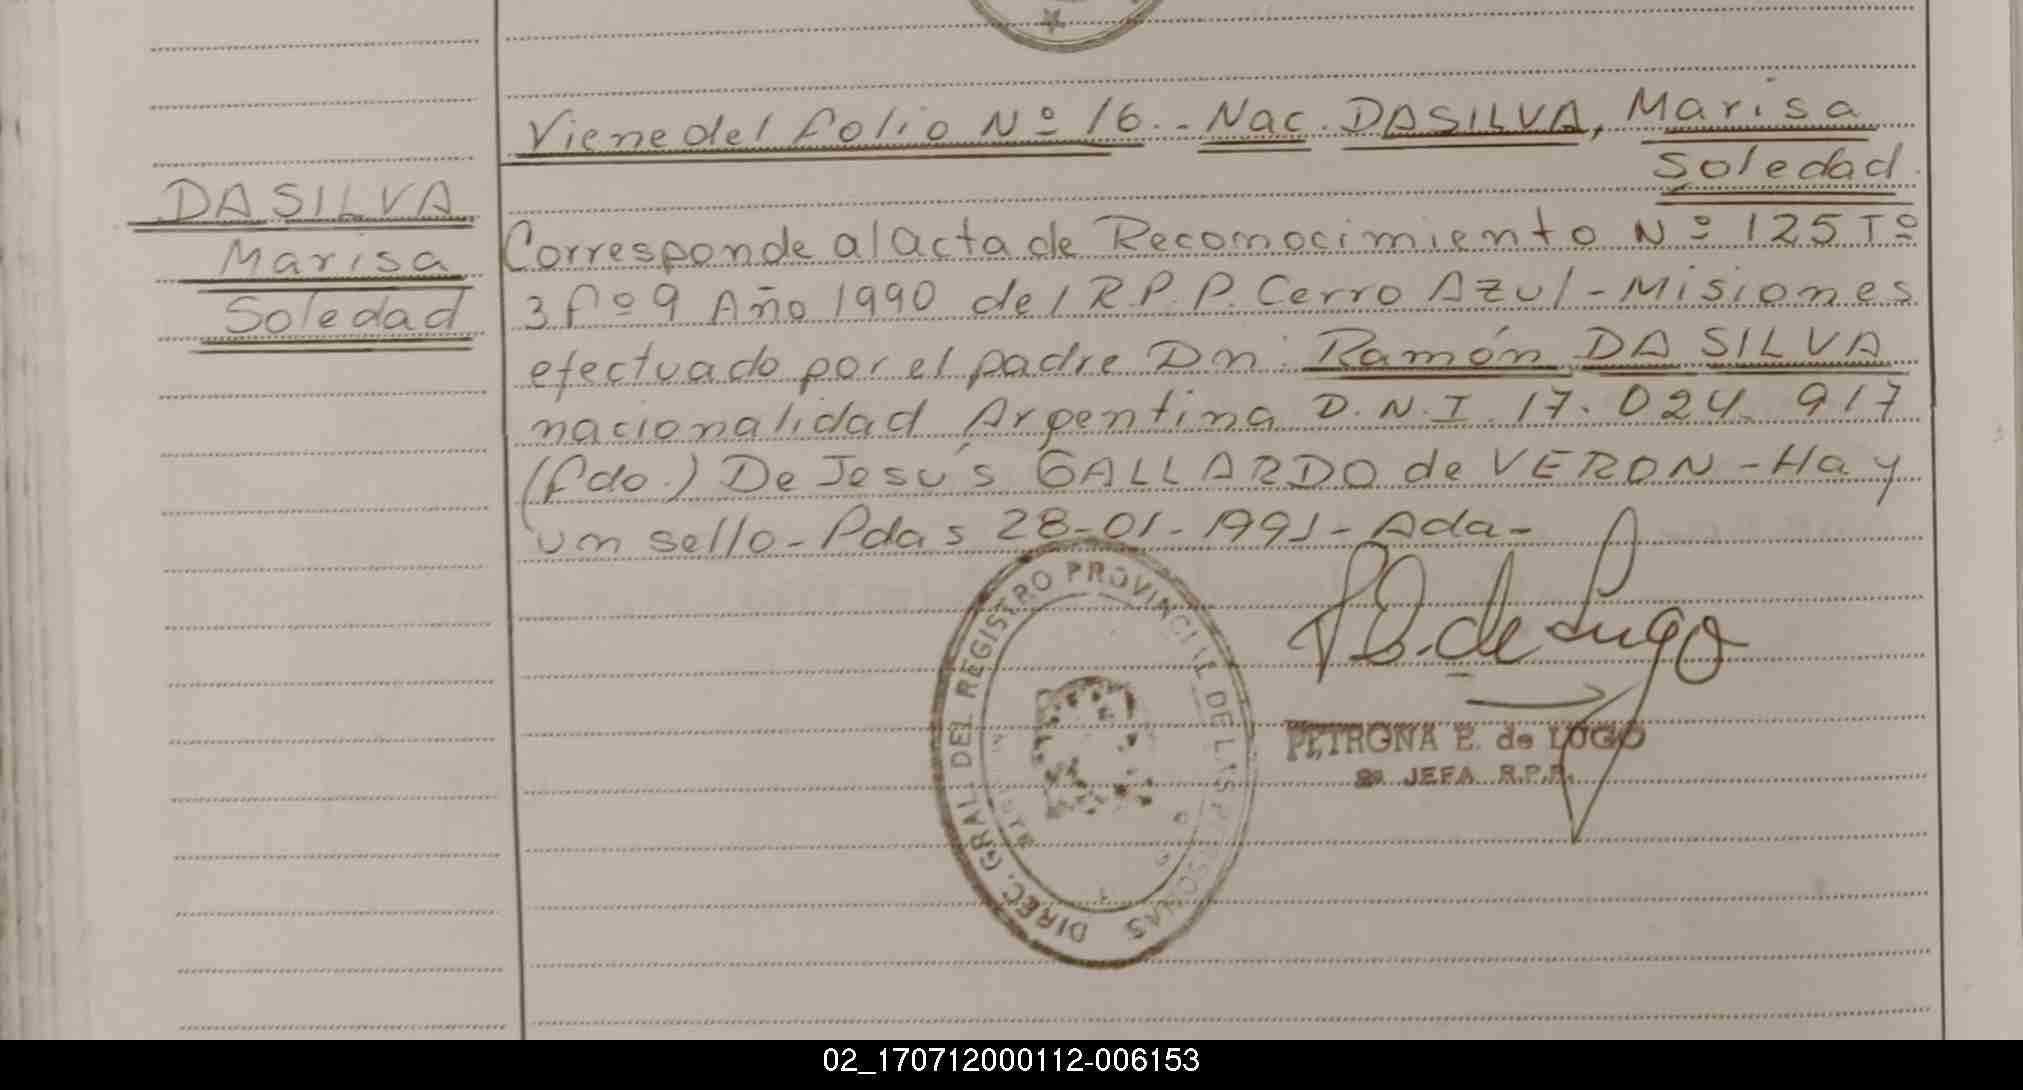 DA SILVA
Marisa
Soledad
Viene del folio Nº 16.- Nac. DA SILVA, Marisa
Soledad.
Corresponde al acta de Reconocimiento Nº 125 Tº
3 fº 9 Año 1990 del R.P.P. Cerro Azul - Misiones
efectuado por el padre Dn. Ramón DA SILVA
nacionalidad Argentina D.N.I. 17.024.917
(fdo.) De Jesús GALLARDO de VERON - Hay
un sello - Pdas 28-01-1991 - Ada -
de Lugo
DIREC. GRAL. DEL REGISTRO PROVINCIAL DE LAS PERSONAS
PETRONA E. de LUGO
2a JEFA R.P.P.
02_170712000112-006153